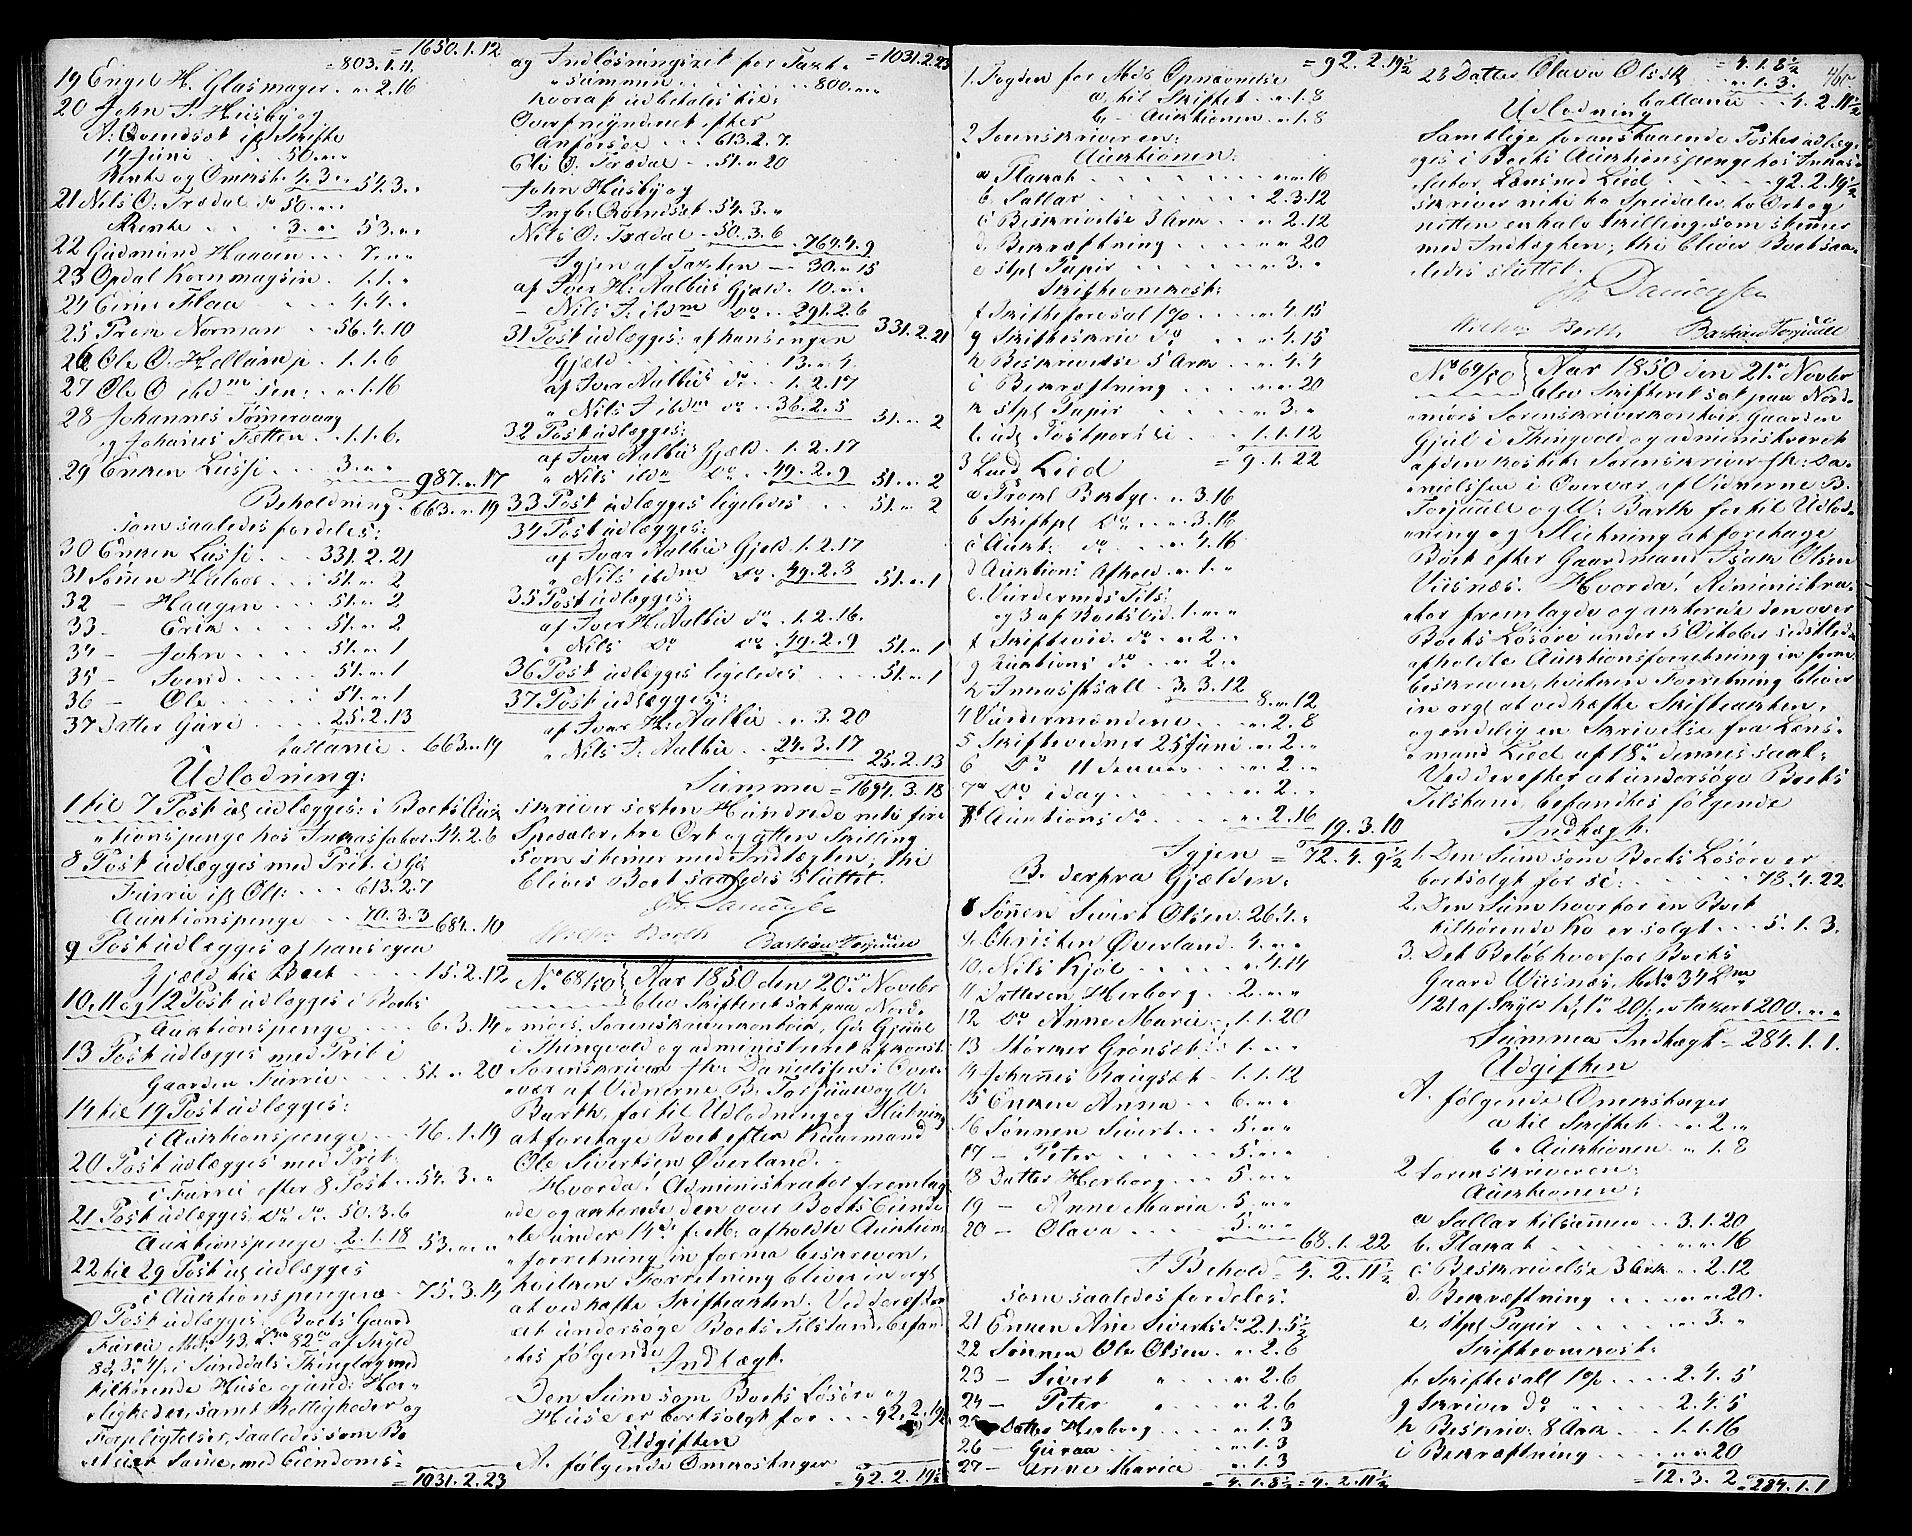 = 1650.1.12
= 803.1.11
19 Engel H. Glasmager . „ 2.16
20 John S. Husby og
14 Juni . . . 50. „ „
Rente og Omkst. 4.3. „ 54.3. „
21 Nils O. Trædal do 50. „ „
Rente . . . 3. „ „ 53. „ „
22 Gudmund Haagen . . . 7. „ „
23 Opdal Kornmagsin . 1.1. „
24 Enne Flaa . . 4.4. „
25 Prem Norman . . 56.4.10
26 Ole O. Hellamp . 1.1.6
27 Ole O ibdm Sen: . „ 1.16
28 Johannes
og Johanes Fætten . 1.1.6.
29 Enken Lussi . . . 3. „ „
987. „ 17
Beholdning . 663. „ 19
som saaledes fordeles:
30 Enken Lussi . . . 331.2.21
31 Sønnen Halvor . . . 51. „ 2
32 — Haagen . . . 51. „ 2
33 — Erik . . . 51. „ 2
34 — John . . . 51. „ 1
35 — Sivend . . . 51. „ 1
36 — Ole . . . 51. „ 1
37 Datter Guri . . . 25.2.13
ballance . 663. „ 19
Udlodning:
1 til 7 Post udlægges: i Boets Auk
„tionspenge hos Inkassator 44.2.6
8 Post udlægges med Prit. i Gd
Furru ifl Oll: . . . 613.2.7
Auktionspenge . . 70.3.3 684. „ 10
9 Post udlægges af hans egen
Gjæld til Boet . . . 15.2.12
10, 11 og 12 Post udlægges i Boets
Auktionspenge . . . 6.3.14
13 Post udlægges med Prit. i
Gaarden Furru . . . 51. „ 20
14 til 19 Post udlægges:
i Auktionspenge . . . 46.1.19
20 Post udlægges med Prit.
i Furru efter 8 Post . . 54.3. „
21 Post udlægges do do . 50.3.6
Auktionspenge 2.1.18 53. „ „
22 til 29 Post udlægges
i Auktionspengene . 75.3.14
Post udlægges: Boets Gaard
Furru Mno 43. Lno 82 af Skyld
i Sunddals Thinglag med
tilhørende Huse og und: Her-
„ligheder, samt Rettigheder og
Forpligtelser, saaledes som Bo
eier Same, med Eiendoms-
= 1031.2.23
og Indløsningsret for Taxt- = 1031.2.23
„sammen . . . 800. „ „
hvoraf udbetales til:
Overformynderiet efter
anførsel . . 613.2.7.
Eli O. Trædal . . 51. „ 20
John Husby og
Ingb: Qvendset . 54.3. „
Nils O: Trædal . 50.3.6
769.4.9
Igjen af Taxten — 30. „ 15
af Iver H. Aalbus Gjæld . 10. „ „
— Nils I. ibdm do . . 291.2.6
331.2.21
31 Post udlægges: af hans egen
Gjæld . . . 13. „ 4
af Iver Aalbus do . 1.2.17
„ Nils I ibdm do . 36.2.5
51. „ 2
32 Post udlægges:
af Iver Aalbus Gjæld . 1.2.17
„ Nils ibdm do . 49.2.9 51. „ 2
33 Post udlægges ligeledes . . . 51. „ 2
34 Post udlægges:
af Ivar Aalbu Gjeld . 1.2.17
„ Nils ibdm do . 49.2.8 51. „ 1
35 Post udlægges:
af Iver H. Aalbu do . 1.2.16.
„ Nils do do . 49.2.9 51. „ 1
36 Post udlægges ligeledes . . . 51. „ 1
37 Post udlægges:
af Iver H. Aalbu . . „ 3.20
„ Nils I. Aalbu . . 24.3.17
25.2.13
Summa = 1694.3.18
skriver sexten Hundrede niti fire
Spedaler, tre Ort og atten Skilling
som stemer med Indtægten, thi
bliver Boet saaledes sluttet.
Fr. Danielsen
Wilhm Barth Bastian Torjuul
No 68/50 } Aar 1850 den 20de Novbr
blev Skifteret sat paa Nord-
„mørs Sorenskriverkontoir, Gd. Gjuul
i Thingvold og administreret af konst:
Sorenskriver Hr. Danielsen i Over-
„vær af Vidnerne B. Torjuul og W.
Barth, for til Udlodning og Slutning
at foretage Boet efter Kaarmand
Ole Sivertsen Øverland.
Hvorda! Administrator fremlag-
„de og anterede, den over Boets Eiende
„le under 14de f: M: afholdte Auktions
„forretning in forma beskreven,
hvilken Forretning bliver in orgl
at vedhæfte Skifteakten. Ved derefter
at undersøge Boets Tilstand, befand
„tes følgende
Indtægt.
Den Sum som Boets Løsøre og
Huse er bortsolgt for . . . 92.2.19½
Udgiften
A. følgende Omkostninger
= 92.2.19½
1. Fogden for Mds Opnævnelse = 92.2.19½
a, til Skiftet . . „ 1.8
b — Auktionen . „ 1.8
2 Sorenskriveren:
Auktionen:
a Plakat . . . „ „ 16
b. Sallar . . . 2.3.12
c Beskrivelse 3 Ark . . „ 2.12
d. Bekræftning . . . „ „ 20
e stpl Papir . . . „ 3. „
Skifteomkost:
f Skifteforesal 1% . . . „ 4.15
g Skifteskriv do „ . . „ 4.15
h Beskrivelse 5 Ark . . „ 4.4
i Bekræftning . . . „ „ 20
k stpl Papir . . . „ 3. „
l. udl Postporto . . . 1.1.12
3 Lnsd Lied = 9.1.22
a Prokl Bekbgl . „ 3.16
b Skiftpl do . . „ 3.16
c Aukt: do . . . „ 4.16
d Auktions Afhold . „ 1. „
e. Vurdermds Tils:
og 3 af Boetslsd . 1. „ „
f Skiftevid. do . „ 2. „
g Auktions do . . „ 2. „
h Inkassosall . 3.3.12
8. „ 12
4 Vurdermændene . . . „ 2.8
5 Skiftevidner 25 Juni . . „ 2. „
6 do 11 dennes . . „ 2. „
7 do idag . . . „ 2. „
8 Auktions do . . . „ 2.16
19.3.10
Igjen = 72.4.9½
B. derfra Gjælden:
8 Sønnen Sivert Olsen . 26.4. „
9. Christen Øverland . 4. „ „
10. Nils Kjøl . . . „ 4.14
11 Datteren Herborg . . 2. „ „
12 do Anne Marie . . 1.1.20
13 Størker Grønsæt . . 1. „ „
14 Johannes Raugsæt . 1.1.12
15 Enken Anna . . 6. „ „
16 Sønnen Sivert . . 5. „ „
17 — Peter . . . 5. „ „
18 Datter Herborg . . 5. „ „
19 — Anne Maria . 5. „ „
20 — Olava . . . 5. „ „
68.1.22
I Behold = 4.2.11½
som saaledes fordeles:
21 Enken Ane Sivertsdr 2.1.5½
22 Sønnen Ole Olsen . „ 2.6
23 — Sivert „ . „ 2.6
24 — Peter „ . „ 2.6
25 Datter Herborg . . „ 1.3
26 — Guraa . . . „ 1.3
27 — Anne Maria . „ 1.3
= 4.1.8½ = 4.2.11½
28 Datter Olava Olsdt = 4.1.8½
„ 1.3.
ballance . . 4.2.11½
Udlodning
Samtlige foranstaaende Poster udlæg-
„ges i Boets Auktionspenge hos Inkas-
„sator Lænsmd Lied . . . 92.2.19½
skriver niti to Speciedaler, to Ort og
nitten en halv Skilling som stemer
med Indtægten; thi bliver Boet saa-
„ledes sluttet.
Fr. Danielsen
Wilhm Barth Bastian Torjuul
No 69/50 } Aar 1850 den 21de Novbr
blev Skifteret sat paa Nord-
„mørs Sorenskriverkontoir Gaarden
Gjul i Thingvold og administreret
af den konstit: Sorenskriver Hr: Da-
„nielsen i Overvær af Vidnerne B.
Torjuul og W: Barth for til Udlod-
„ning og Slutning at foretage
Boet efter Gaardmand Isak Olsen
Viisnæs. Hvorda! Administra-
„tor fremlagde og anterede den over
Boets Løsøre under 5 Oktober sidstleden
afholdte Auktionsforretning in forma
beskreven, hvilken Forretning bliver
in orgl at vedhæfte Skifteakten,
og endelig en Skrivelse fra Lens-
„mand Lied af 18de dennes saal:
Ved derefter at undersøge Boets
Tilstand, befandtes følgende
Indtægt.
1. Den Sum som Boets Løsøre er
bortsolgt for se: . . . 78.4.22
2. Den Sum hvorfor en Boet
tilhørende Ko er solgt . . . 5.1.3.
3. Det Beløb hvorfor Boets
Gaard Wiisnæs, MNo 34 Lno
121 af Skyld er takseret 200. „ „
Summa Indtægt = 284.1.1.
Udgiften
A. følgende Omkostninger
a til Skiftet . . „ 2. „
b „ Auktionen . „ 1.8
2 Sorenskriveren:
Auktionen:
a Sallar tilsammen . . 3.1.20
b. Plakat . . . „ „ 16
c Beskrivelse 3 Ark . „ 2.12
d. Bekræftning . . . „ „ 20.
e. stpl Papir . . . „ 3. „
Skifteomkost:
f. Skiftesall 1% . . . 2.4.5
g Skriver do „ . . . 2.4.5
h Beskriv: 8 Ark . . . 1.1.16
i Bekræftning . . . „ „ 20
= 12.3.2 = 284.1.1